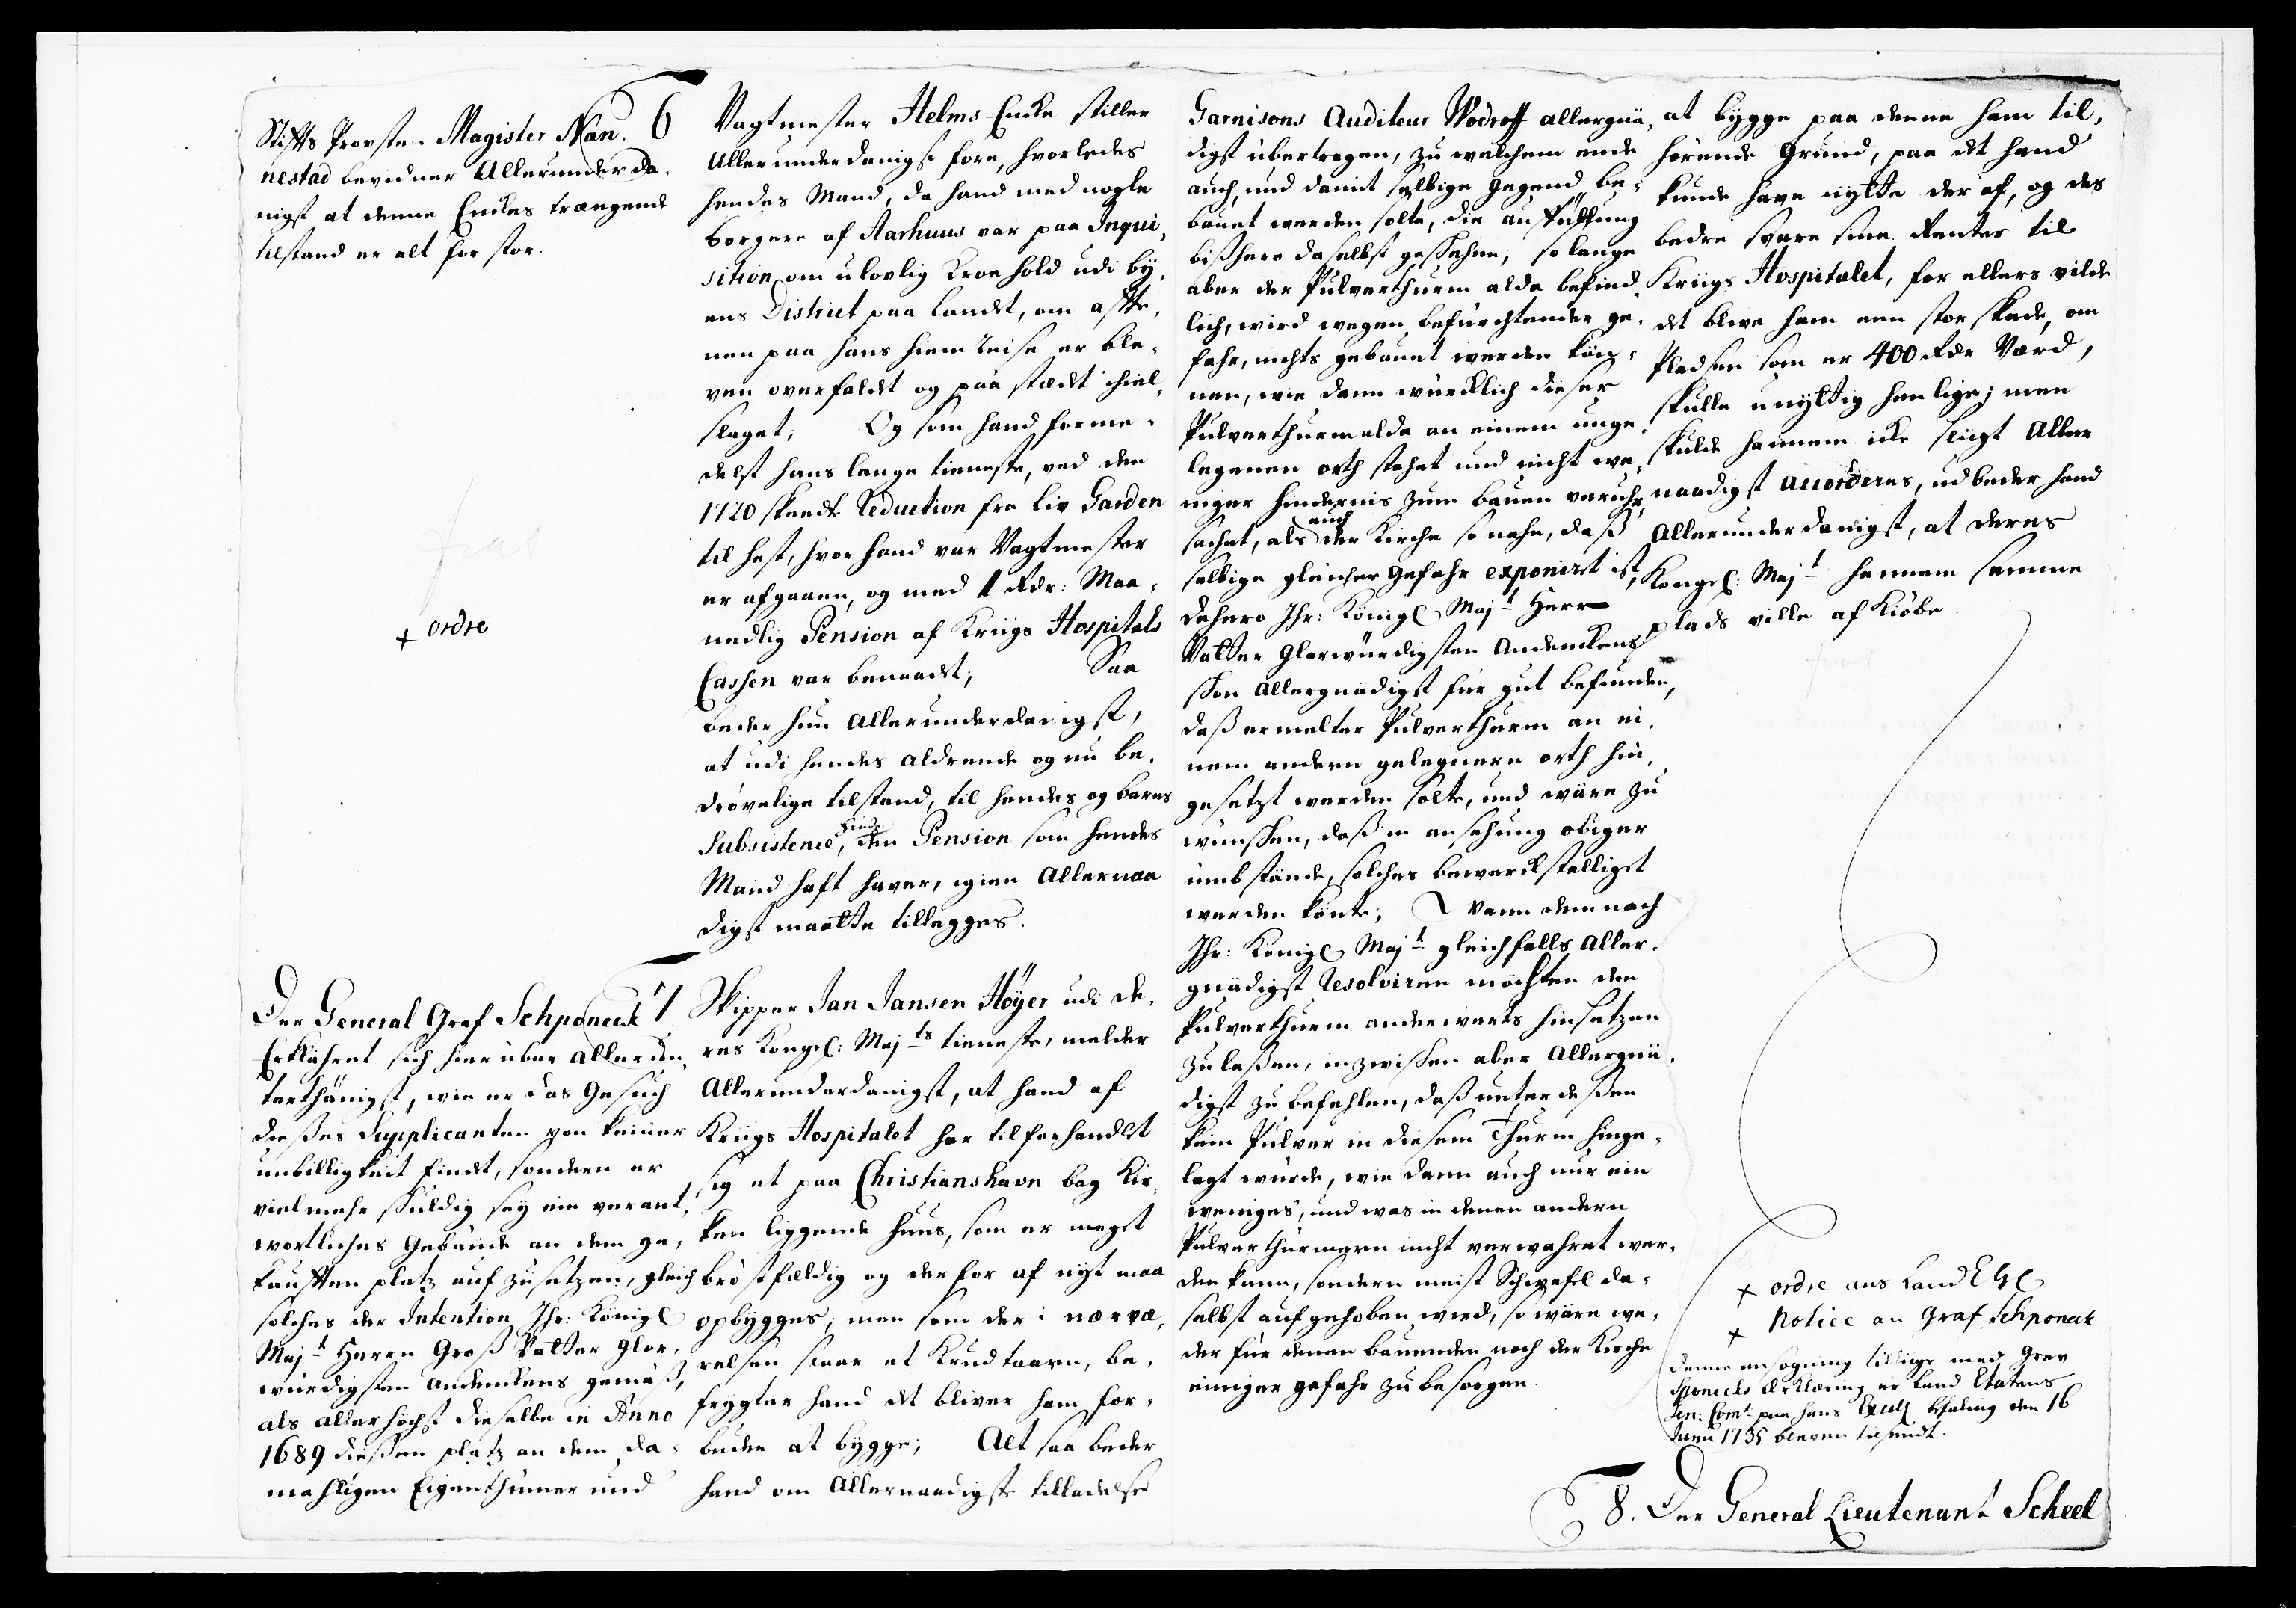 Stifts Provsten Magister Nan-
nestad bevidner Allerunderda-
nigst at denne Enckes trængende
tilstand er alt for stor.
+ ordre
6
Vagtmester Helms Encke stiller
Allerunderdanigst fore, hvorledes
hendes Mand, da hand med nogle
borgere af Aarhuus var paa Inqui-
sition om ulovlig Kroehold udi by-
ens District paa Landet, om affte-
nen paa hans hiem Reise er ble-
ven overfaldt og paa stædet ihiel-
slaget; Og som hand forme-
delst hans lange tieneste, ved den
1720 skeede Reduction fra Liv Garden
til hest, hvor hand var Vagtmester
er afgaaen, og med 1 Rdr: Maa-
nedlig Pension af Kriigs Hospitals
Cassen var benaadet; Saa
beder hun Allerunderdanigst,
at udi hendes aldrende og nu be-
drøvelige tilstand, til hendes og barns
Subsistence, hende den Pension som hendes
Mand haft haver, igien Allernaa
digst maatte tillegges.
Der General Graf Schponeck
Erklähret sich hierüber allerun-
terthänigst, wie er das Gesuch
dießes Supplicanten von keiner
unbilligkeit findt, sondern er
vielmehr schuldig sey ein verant-
wortliches Gebäude an dem ge-
kaufften platz auf zu setzen, gleich
solches der Intention Ihr: Königl
Majt Herrn Groß Vatter Glor-
würdigsten Andenckens gemäß,
als allerhöchst dieselbe in Anno
1689 dießen platz an dem da-
mahligen Eigenthümer und
7
Skipper Jan Jansen Höyer udi de-
res Kongel: Majts tieneste, melder
Allerunderdanigst, at hand af
Kriigs Hospitalet har tilforhandlet
sig et paa Christianshavn bag Kir-
ken liggende huus, som er meget
brøstfældig og derfor af nyt maa
opbygges; men som der i nærvæ-
relsen staar et Krudtaarn, be-
frygter hand det bliver ham for-
buden at bygge; Alt saa beder
hand om Allernaadigste tilladelse
Garnisons Auditeur Wodroff allergnä-
digst übertragen, zu welchem ende
auch, und damit selbige Gegend be-
bauet werden solte, die ausfüllung
bißhero daselbst geschehen, so lange
aber der Pulverthurm alda befind-
lich, wird wegen befürchtender ge-
fahr, nichts gebauet werden kön-
nen, wie dann würcklich dieser
Pulverthurm alda an einem unge-
legenen orth stehet und nicht we-
niger hindernis zum bauen veruhr-
sachet, als auch der Kirche so nahe, daß
selbige gleicher Gefahr exponirt ist,
dahero Ihr: Königl Majt Herr
Vatter Glorwürdigsten Andenckens
schon Allergnädigst für gut befunden,
daß ermelter Pulverthurm an ei-
nem andern gelegnern orth hin-
gesetzt werden solte, und wäre zu
wünschen, daß in ansehung obiger
umbstände, solches bewerckstelliget
werden könte; Wann demnach
Ihr: Königl Majt gleichfalls Aller-
gnädigst Resolviren möchten den
Pulverthurm anderwerts hinsetzen
zu laßen, inzwischen aber Allergnä-
digst zu befehlen, daß unterdeßen
kein Pulver in diesem Thurm hinge-
legt würde, wie dann auch nur ein
weniges, und was in denen andern
Pulverthürmern nicht verwahret wer-
den kann, sondern meist Schwefel da-
selbst aufgehoben wird, so wäre we-
der für denen bauenden noch der Kirche
einiger gefahr zu besorgen.
at bygge paa denne ham til-
hørende Grund, paa det hand
kunde have nytte der af, og des
bedre svare sine Renter til
Kriigs Hospitalet, for ellers vilde
det blive ham een stor skade, om
Pladsen som er 400 Rdr Værd,
skulle unyttig henlige; men
skulde hannem icke sligt Aller
naadigst accorderes, udbeder hand
Allerunderdanigst, at deres
Kongel: Majt hannem samme
plads ville af Kiøbe
+ ordre ans Land
+ Notice an Graf Schponeck
Denne ansøgning tillige med Grev
Sponecks Erklæring er Land Etatens
Gen: Comt paa hans befaling den 16
Junii 1735 bleven tilsendt.
8. Der General Lieutenant Scheel